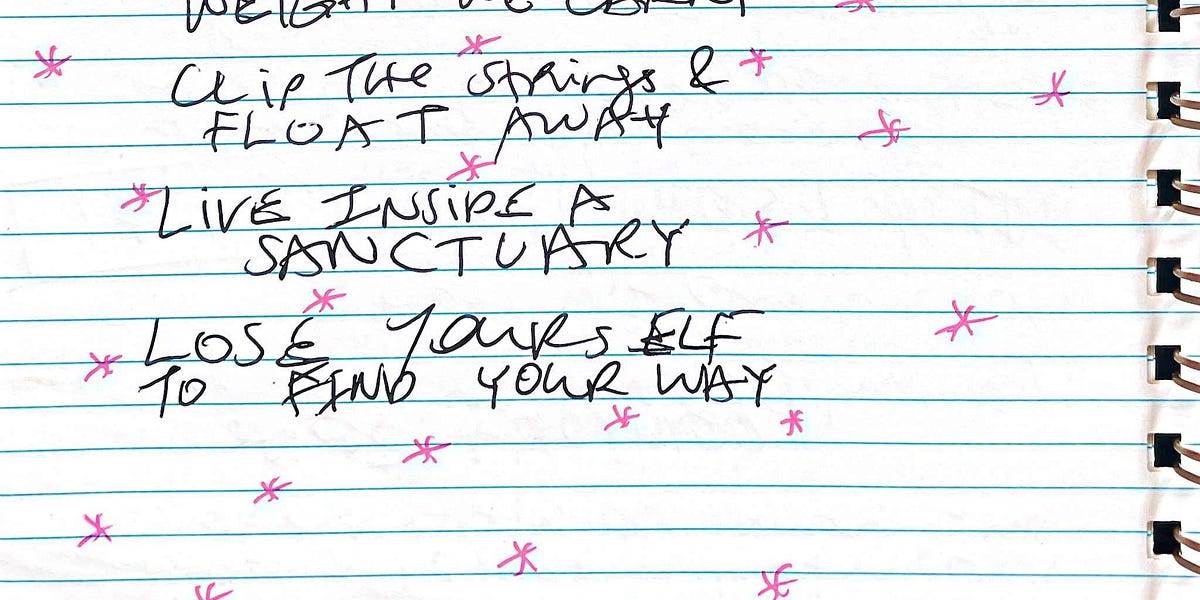 WEIGHT WE CARRY
CLiP THE Strings &
FLOAT AWAY
LiVE INSiDE A
SANCTUARY
LOSE YOURSELF
TO FIND YOUR WAY